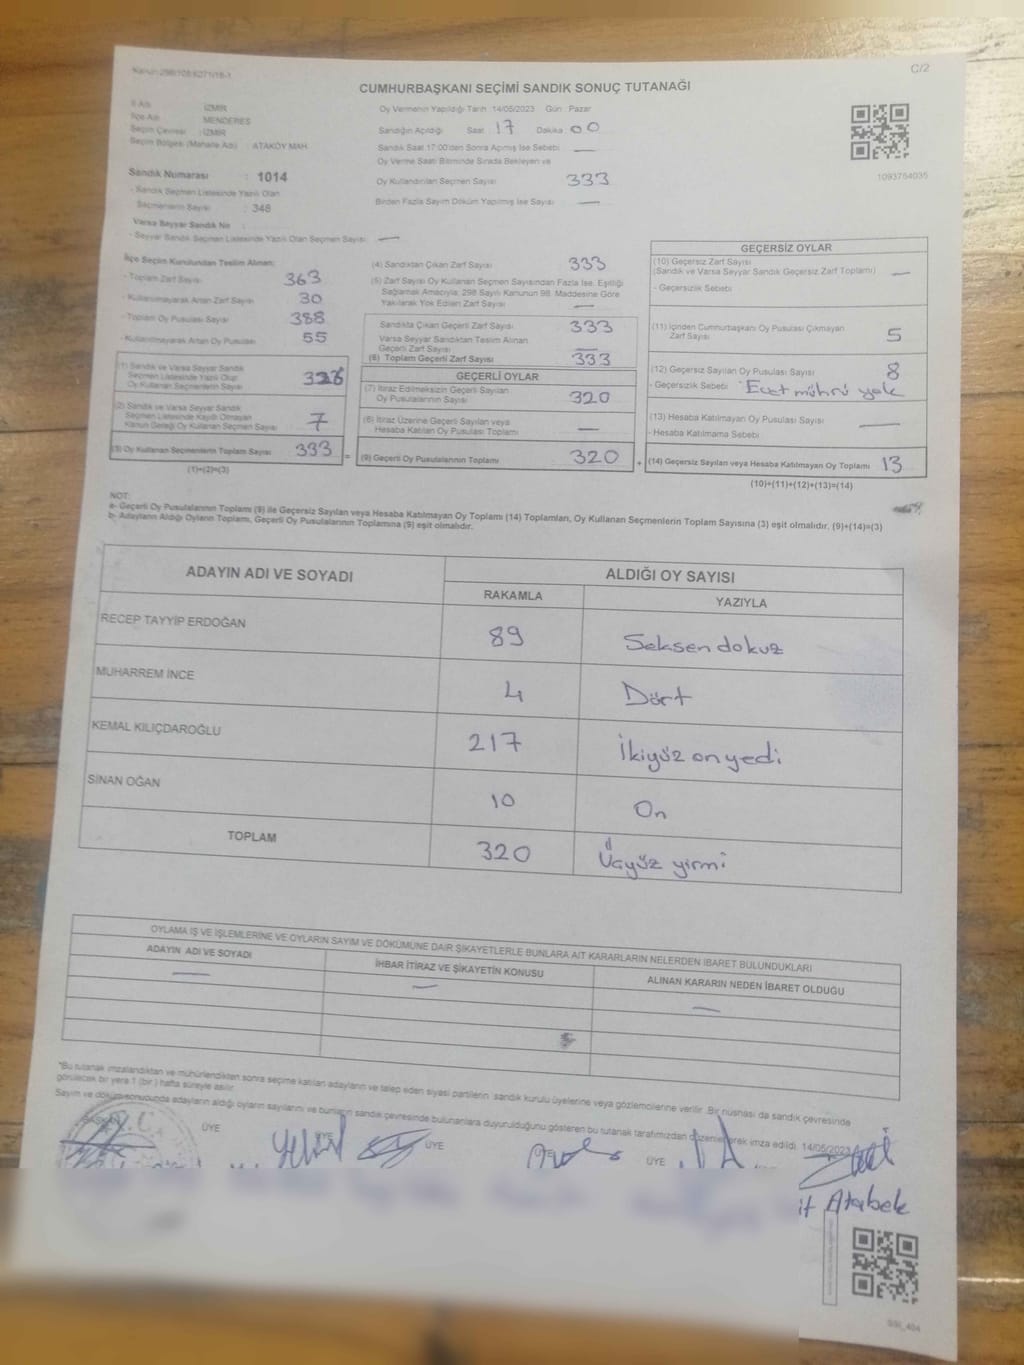 Kanun:298/105 6271/18-1
C/2
CUMHURBAŞKANI SEÇİMİ SANDIK SONUÇ TUTANAĞI
İl Adı : İZMİR
İlçe Adı : MENDERES
Seçim Çevresi : İZMİR
Seçim Bölgesi (Mahalle Adı) : ATAKÖY MAH.
Oy Vermenin Yapıldığı Tarih 14/05/2023 Gün Pazar
Sandığın Açıldığı Saat : 17 Dakika 00
Sandık Saat 17:00'den Sonra Açılmış İse Sebebi : —
Oy Verme Saati Bitiminde Sırada Bekleyen ve
Oy Kullandırılan Seçmen Sayısı 333
Birden Fazla Sayım Döküm Yapılmış İse Sayısı —
1093754035
Sandık Numarası : 1014
- Sandık Seçmen Listesinde Yazılı Olan
Seçmenlerin Sayısı : 348
Varsa Seyyar Sandık No :
- Seyyar Sandık Seçmen Listesinde Yazılı Olan Seçmen Sayısı: —
İlçe Seçim Kurulundan Teslim Alınan:
- Toplam Zarf Sayısı 363
- Kullanılmayarak Artan Zarf Sayısı 30
- Toplam Oy Pusulası Sayısı 388
- Kullanılmayarak Artan Oy Pusulası 55
(1) Sandık ve Varsa Seyyar Sandık
Seçmen Listesinde Yazılı Olup
Oy Kullanan Seçmenlerin Sayısı 326
(2) Sandık ve Varsa Seyyar Sandık
Seçmen Listesinde Kayıtlı Olmayan
Kanun Gereği Oy Kullanan Seçmen Sayısı 7
(3) Oy Kullanan Seçmenlerin Toplam Sayısı 333
(1)+(2)=(3)
(4) Sandıktan Çıkan Zarf Sayısı 333
(5) Zarf Sayısı Oy Kullanan Seçmen Sayısından Fazla İse, Eşitliği
Sağlamak Amacıyla; 298 Sayılı Kanunun 98. Maddesine Göre
Yakılarak Yok Edilen Zarf Sayısı —
Sandıkta Çıkan Geçerli Zarf Sayısı 333
Varsa Seyyar Sandıktan Teslim Alınan
Geçerli Zarf Sayısı —
(6) Toplam Geçerli Zarf Sayısı 333
GEÇERLİ OYLAR
(7) İtiraz Edilmeksizin Geçerli Sayılan
Oy Pusulalarının Sayısı 320
(8) İtiraz Üzerine Geçerli Sayılan veya
Hesaba Katılan Oy Pusulası Toplamı —
= (9) Geçerli Oy Pusulalarının Toplamı 320 +
GEÇERSİZ OYLAR
(10) Geçersiz Zarf Sayısı
(Sandık ve Varsa Seyyar Sandık Geçersiz Zarf Toplamı) —
- Geçersizlik Sebebi
(11) İçinden Cumhurbaşkanı Oy Pusulası Çıkmayan
Zarf Sayısı 5
(12) Geçersiz Sayılan Oy Pusulası Sayısı 8
- Geçersizlik Sebebi Evet mührü yok
(13) Hesaba Katılmayan Oy Pusulası Sayısı —
- Hesaba Katılmama Sebebi
(14) Geçersiz Sayılan veya Hesaba Katılmayan Oy Toplamı 13
(10)+(11)+(12)+(13)=(14)
NOT:
a- Geçerli Oy Pusulalarının Toplamı (9) ile Geçersiz Sayılan veya Hesaba Katılmayan Oy Toplamı (14) Toplamları, Oy Kullanan Seçmenlerin Toplam Sayısına (3) eşit olmalıdır. (9)+(14)=(3)
b- Adayların Aldığı Oyların Toplamı, Geçerli Oy Pusulalarının Toplamına (9) eşit olmalıdır.
ADAYIN ADI VE SOYADI ALDIĞI OY SAYISI
RAKAMLA YAZIYLA
RECEP TAYYİP ERDOĞAN 89 Seksen dokuz
MUHARREM İNCE 4 Dört
KEMAL KILIÇDAROĞLU 217 İkiyüz onyedi
SİNAN OĞAN 10 On
TOPLAM 320 Üçyüz yirmi
OYLAMA İŞ VE İŞLEMLERİNE VE OYLARIN SAYIM VE DÖKÜMÜNE DAİR ŞİKAYETLERLE BUNLARA AİT KARARLARIN NELERDEN İBARET BULUNDUKLARI
ADAYIN ADI VE SOYADI İHBAR İTİRAZ VE ŞİKAYETİN KONUSU ALINAN KARARIN NEDEN İBARET OLDUĞU
— — —
*Bu tutanak imzalandıktan ve mühürlendikten sonra seçime katılan adayların ve talep eden siyasi partilerin sandık kurulu üyelerine veya gözlemcilerine verilir. Bir nüshası da sandık çevresinde
görülecek bir yere 1 (bir) hafta süreyle asılır.
Sayım ve döküm sonucunda adayların aldığı oyların sayılarını ve bunların sandık çevresinde bulunanlara duyurulduğunu gösteren bu tutanak tarafımızdan düzenlenerek imza edildi. 14/05/2023
BAŞKAN ÜYE ÜYE ÜYE ÜYE ÜYE
it Atabek